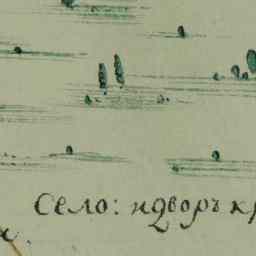 Село: идворъ кр